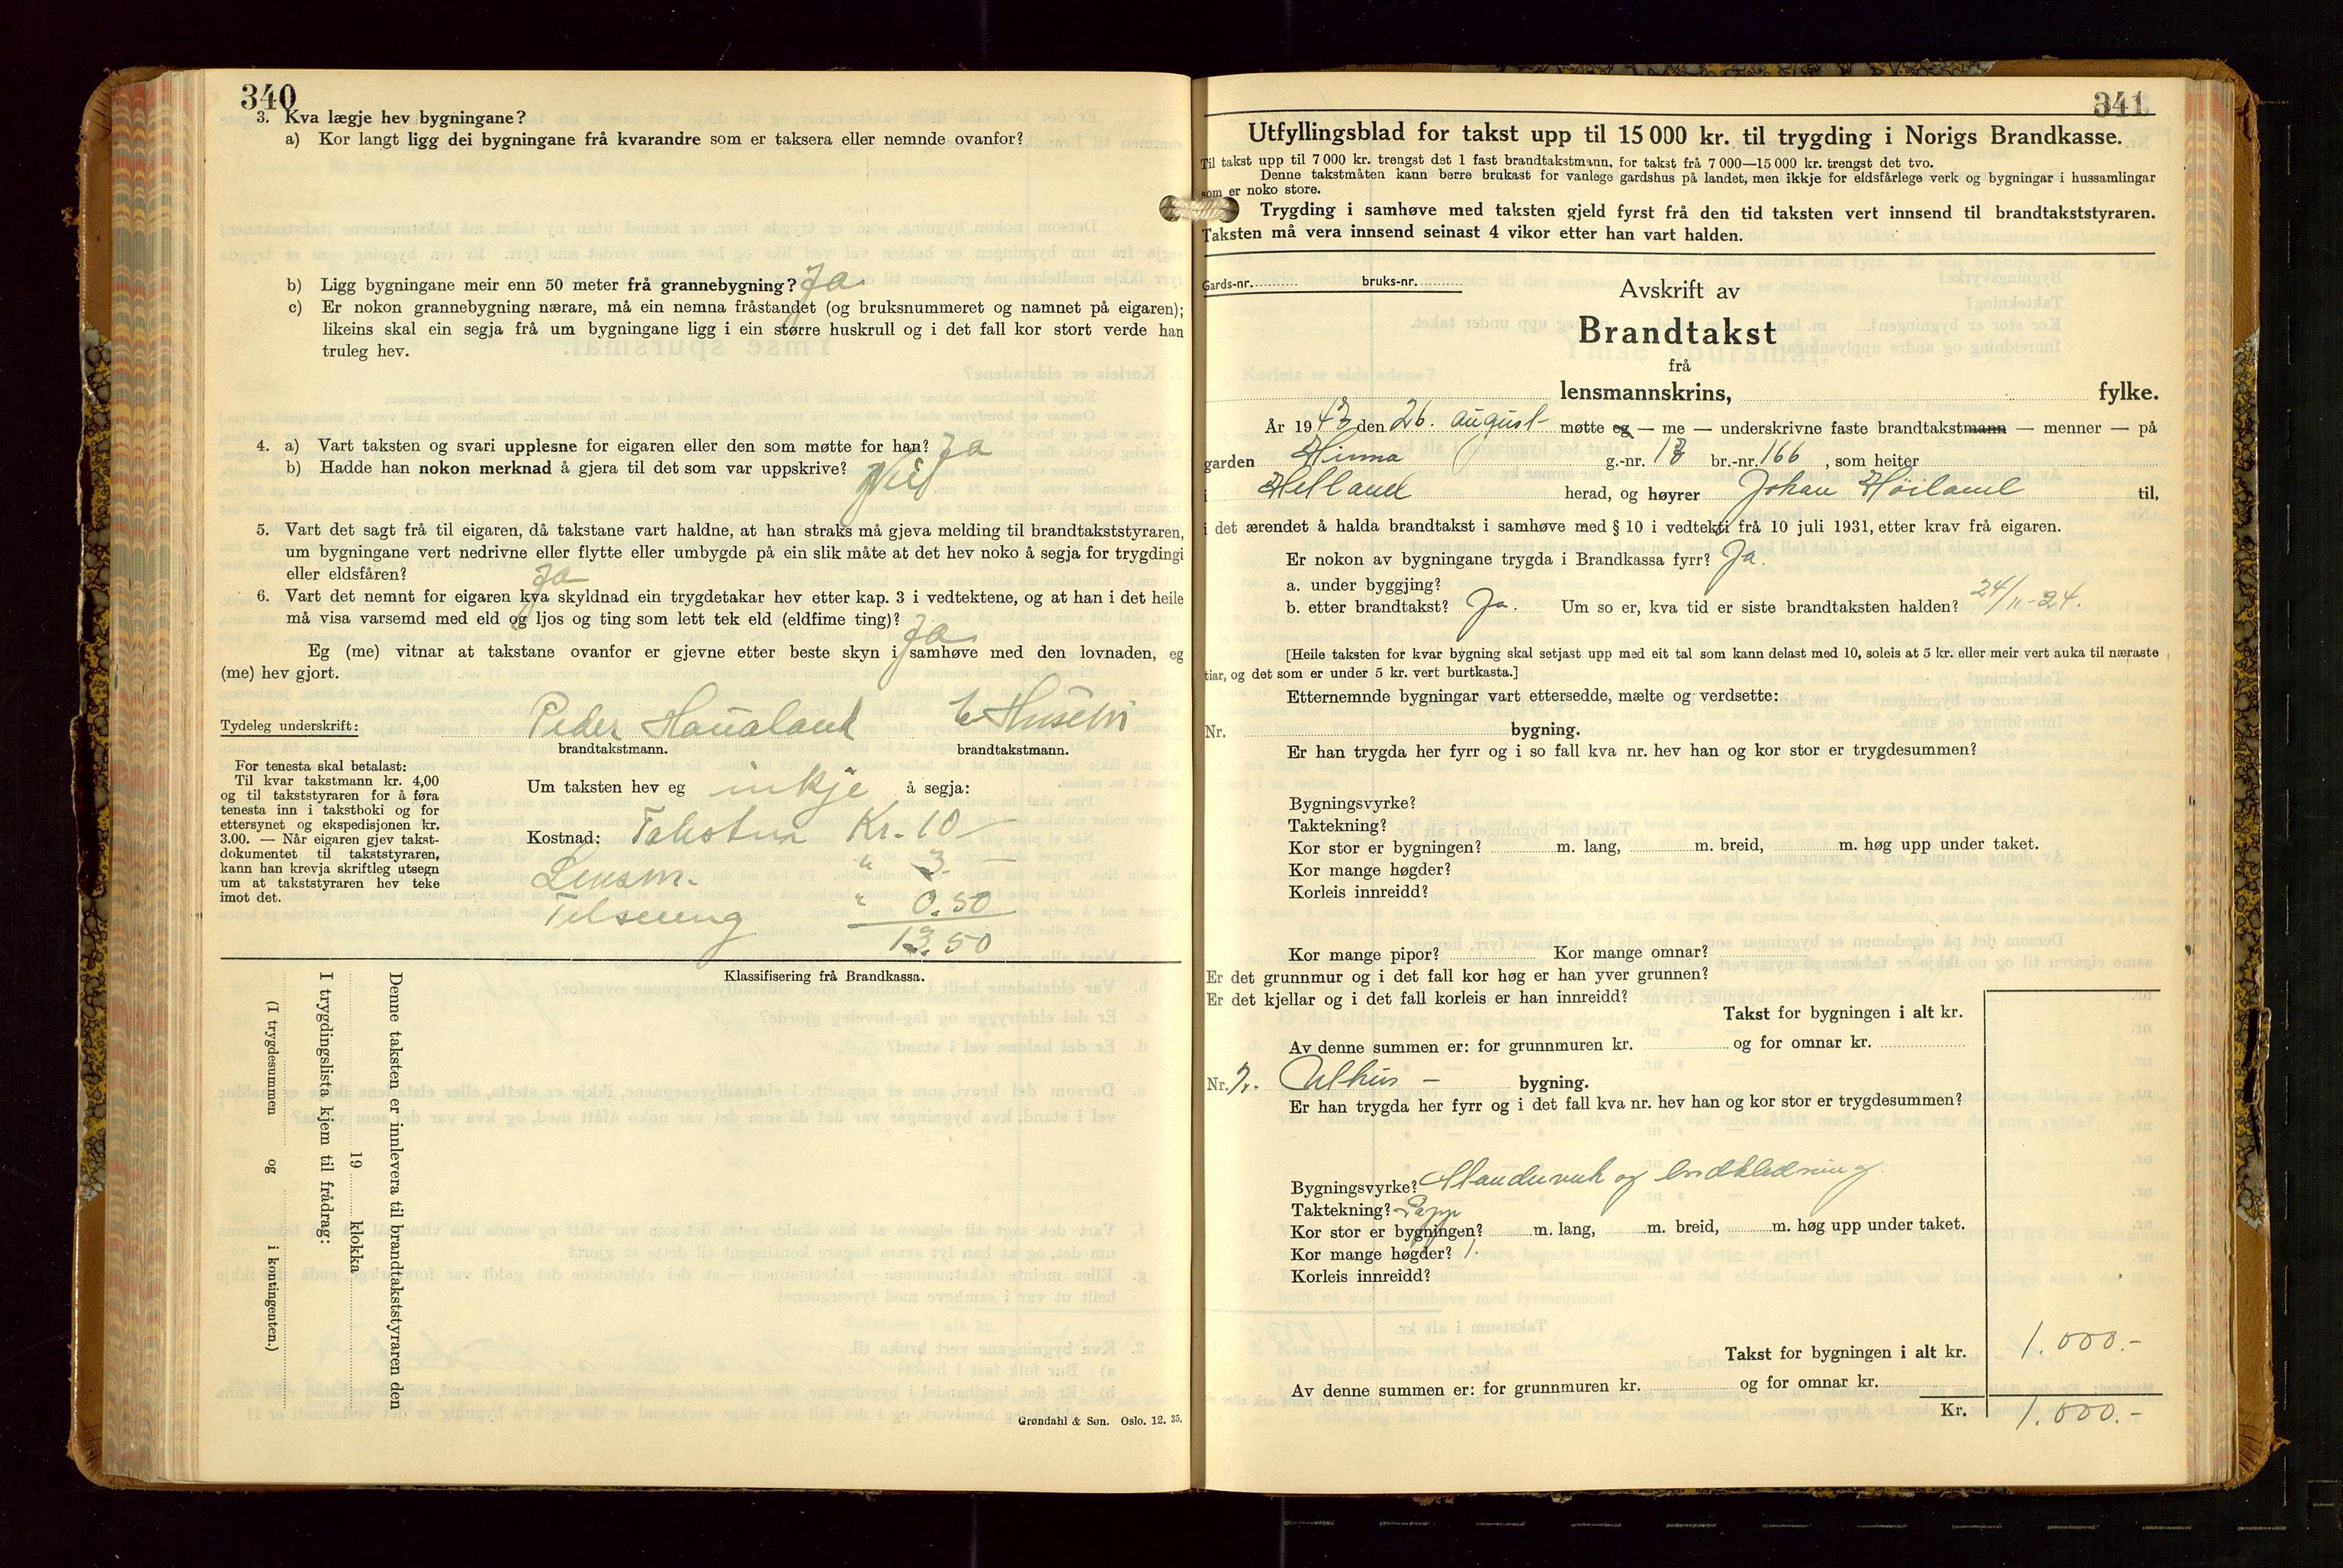 340
3. Kva lægje hev bygningane?
a) Kor langt ligg dei bygningane frå kvarandre som er taksera eller nemnde ovanfor?
b) Ligg bygningane meir enn 50 meter frå grannebygning? Ja
c) Er nokon grannebygning nærare, må ein nemna fråstandet (og bruksnummeret og namnet på eigaren);
likeins skal ein segja frå um bygningane ligg i ein større huskrull og i det fall kor stort verde han
truleg hev.
4. a) Vart taksten og svari upplesne for eigaren eller den som møtte for han? Ja
b) Hadde han nokon merknad å gjera til det som var uppskrive? Nei
5. Vart det sagt frå til eigaren, då takstane vart haldne, at han straks må gjeva melding til brandtakststyraren,
um bygningane vert nedrivne eller flytte eller umbygde på ein slik måte at det hev noko å segja for trygdingi
eller eldsfåren? Ja
6. Vart det nemnt for eigaren kva skyldnad ein trygdetakar hev etter kap. 3 i vedtektene, og at han i det heile
må visa varsemd med eld og ljos og ting som lett tek eld (eldfime ting)? Ja
Eg (me) vitnar at takstane ovanfor er gjevne etter beste skyn i samhøve med den lovnaden, eg
(me) hev gjort.
Tydeleg underskrift: Peder Haualand E Husebø
brandtakstmann. brandtakstmann.
For tenesta skal betalast:
Til kvar takstmann kr. 4,00
og til takststyraren for å føra
tenesta inn i takstboki og for
ettersynet og ekspedisjonen kr.
3.00. — Når eigaren gjev takst-
dokumentet til takststyraren,
kann han krevja skriftleg utsegn
um at takststyraren hev teke
imot det.
Um taksten hev eg inkje å segja:
Kostnad: Takstm Kr. 10 —
Lensm. " 3 —
" 0.50
13.50
Klassifisering frå Brandkassa.
Denne taksten er innlevera til brandtakststyraren den
19 klokka
I trygdingslista kjem til frådrag:
(I trygdesummen og i kontingenten.)
Grøndahl & Søn. Oslo. 12. 35.
341
Utfyllingsblad for takst upp til 15 000 kr. til trygding i Norigs Brandkasse.
Til takst upp til 7 000 kr. trengst det 1 fast brandtakstmann, for takst frå 7 000—15 000 kr. trengst det tvo.
Denne takstmåten kann berre brukast for vanlege gardshus på landet, men ikkje for eldsfårlege verk og bygningar i hussamlingar
som er noko store.
Trygding i samhøve med taksten gjeld fyrst frå den tid taksten vert innsend til brandtakststyraren.
Taksten må vera innsend seinast 4 vikor etter han vart halden.
Gards-nr. bruks-nr.
Avskrift av
Brandtakst
frå
lensmannskrins, fylke.
År 1943 den 26. august møtte eg — me — underskrivne faste brandtakstmann — menner — på
garden Hinna g.-nr. 18 br.-nr. 166, som heiter
i Hetland herad, og høyrer Johan Høiland til,
i det ærendet å halda brandtakst i samhøve med § 10 i vedtekti frå 10 juli 1931, etter krav frå eigaren.
Er nokon av bygningane trygda i Brandkassa fyrr? Ja.
a. under byggjing?
b. etter brandtakst? Ja. Um so er, kva tid er siste brandtaksten halden? 24/11-24.
[Heile taksten for kvar bygning skal setjast upp med eit tal som kann delast med 10, soleis at 5 kr. eller meir vert auka til næraste
tiar, og det som er under 5 kr. vert burtkasta.]
Etternemnde bygningar vart ettersedde, mælte og verdsette:
Nr. bygning.
Er han trygda her fyrr og i so fall kva nr. hev han og kor stor er trygdesummen?
Bygningsvyrke?
Taktekning?
Kor stor er bygningen? m. lang, m. breid, m. høg upp under taket.
Kor mange høgder?
Korleis innreidd?
Kor mange pipor? Kor mange omnar?
Er det grunnmur og i det fall kor høg er han yver grunnen?
Er det kjellar og i det fall korleis er han innreidd?
Takst for bygningen i alt kr.
Av denne summen er: for grunnmuren kr. og for omnar kr.
Nr. 2. Uthus — bygning.
Er han trygda her fyrr og i det fall kva nr. hev han og kor stor er trygdesummen?
Bygningsvyrke? Standerverk og bordkledning.
Taktekning? Papp
Kor stor er bygningen? m. lang, m. breid, m. høg upp under taket.
Kor mange høgder? 1.
Korleis innreidd?
Takst for bygningen i alt kr. 1.000.-
Av denne summen er: for grunnmuren kr. og for omnar kr.
Kr. 1.000.-